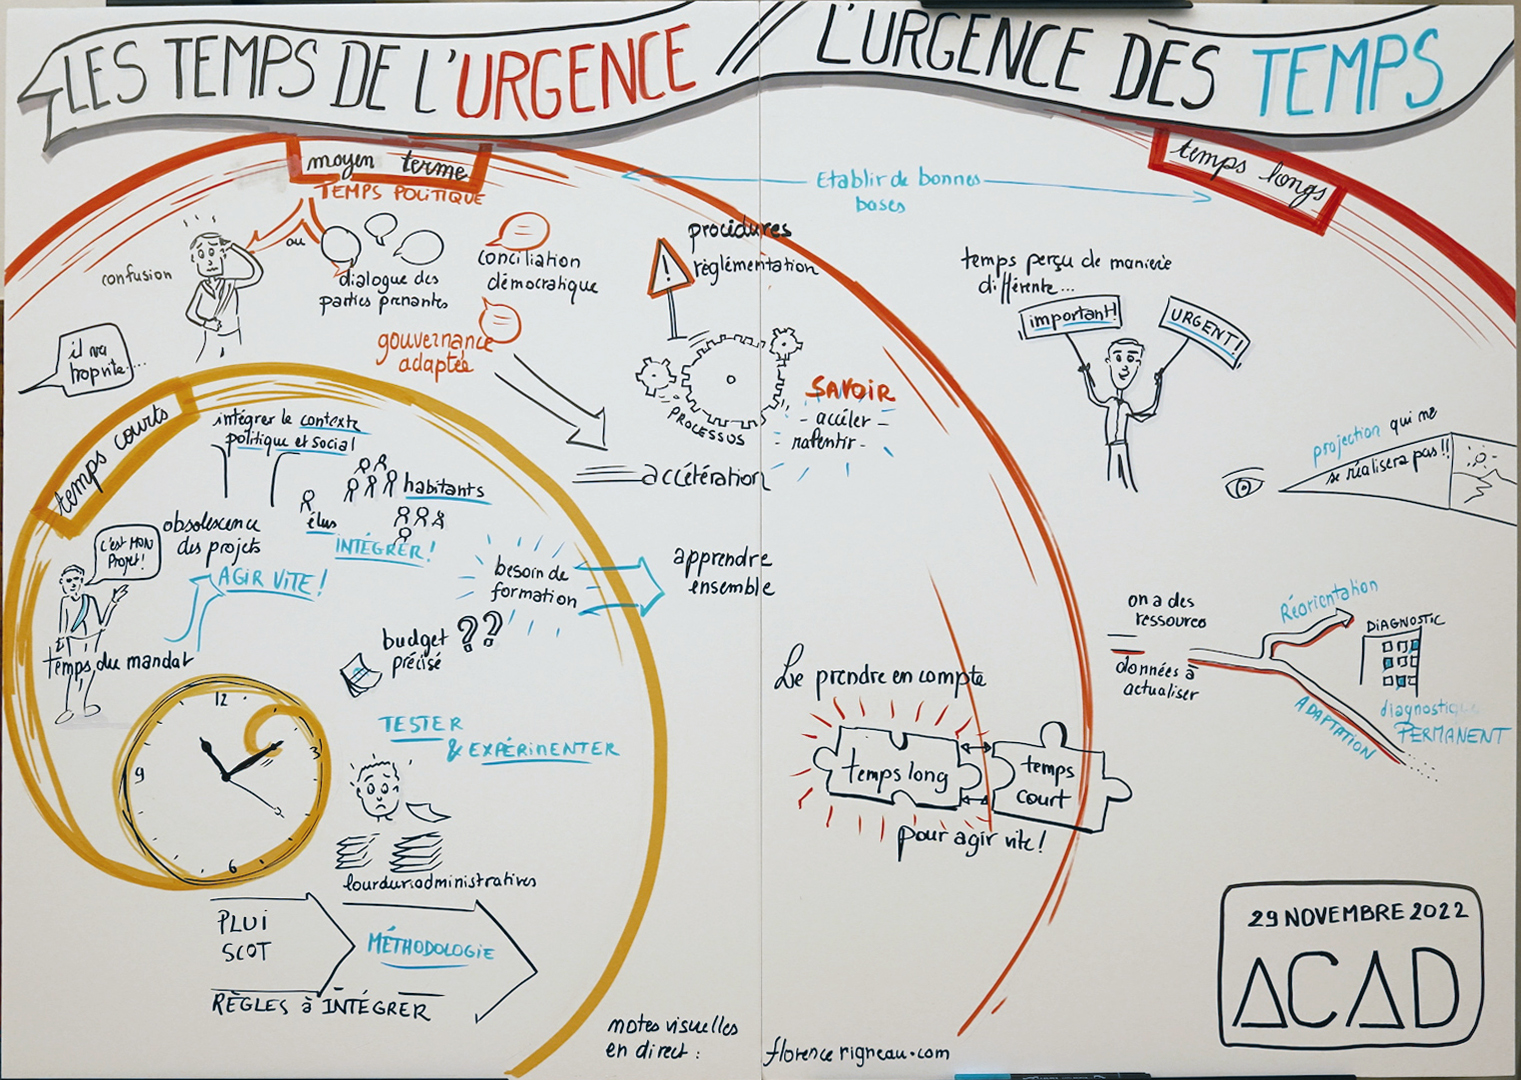 LES TEMPS DE L'URGENCE // L'URGENCE DES TEMPS
moyen terme
TEMPS POLITIQUE
confusion
ou
dialogue des
parties prenantes
conciliation
démocratique
gouvernance
adaptée
il va
trop vite....
procédures
règlémentation
PROCESSUS
SAVOIR
- accéler -
- ralentir -
accélération
Etablir de bonnes
bases
temps longs
temps perçu de manière
différente...
important!
URGENT!
projection qui ne
se réalisera pas!!
temps courts
intégrer le contexte
politique et social
habitants
élus
INTÉGRER!
obsolescence
des projets
AGIR VITE!
C'est MON
Projet!
temps du mandat
besoin de
formation
apprendre
ensemble
budget ??
précisé
12
3
6
9
TESTER
& EXPÉRIMENTER
lourdeur administratives
PLUI
SCOT
MÉTHODOLOGIE
RÈGLES à INTÉGRER
Le prendre en compte
temps long
temps
court
pour agir vite!
on a des
ressources
données à
actualiser
Réorientation
ADAPTATION
DIAGNOSTIC
diagnostic
PERMANENT
29 NOVEMBRE 2022
ACAD
notes visuelles
en direct :
florencerigneau.com